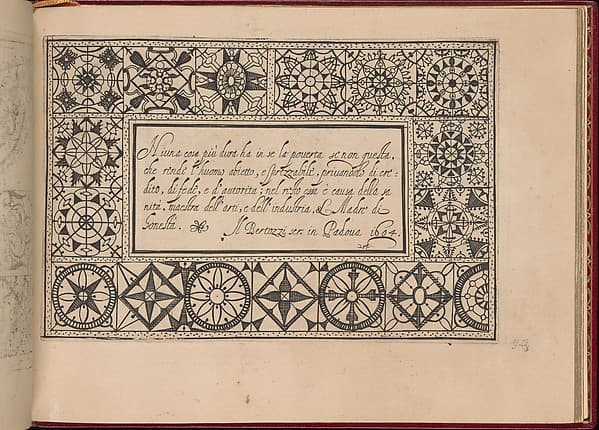 Niuna cosa più dura ha in se la pouerta se non questa,
che rende l'huomo abietto, e sprezzabile, priuandolo di cre=
dito, di fede, e d'autorità; nel resto essa è causa della sa
nità, maestra dell'arti, e dell'industria, & Madre di
Bonestà. Il Bertozzi scr. in Padoua 1604.